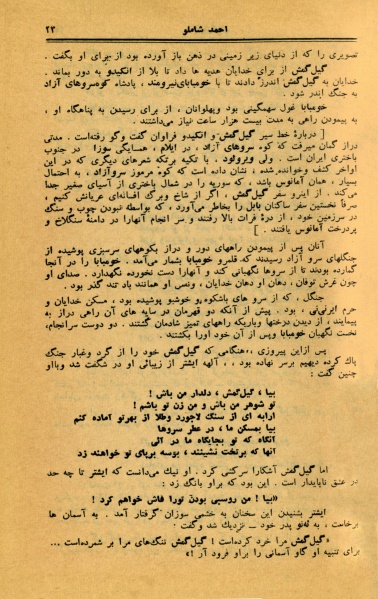 احمد شاملو
۲۳
تصویری را که از دنیای زیر زمینی در ذهن باز آورده بود از برای او بگفت .
گیل‌گمش از برای خدایان هدیه ها داد تا بلا از انکیدو به دور بماند .
خدایان به گیل‌گمش اندرز دادند تا با خومبابای‌نیرومند ، پادشاه کوه‌سروهای آزاد
به جنگ اندر شود .
خومبابا غول سهمگینی بود وپهلوانان ، از برای رسیدن به پناهگاه او ،
به پیمودن راهی به مدت بیست هزار ساعت نیاز می‌داشتند .
[ دربارهٔ خط سیر گیل‌گمش و انکیدو فراوان گفت وگو رفته‌است . مدتی
دراز گمان میرفت که کوه سروهای آزاد ، در ایلام ، همسایگی سوزا در جنوب
باختری ایران است . ولی ویرولود . با تکیه برتکه شعرهای دیگری که در این
اواخر کشف وخوانده شده ، نشان داده است که کوه مرموز سروآزاد ، به احتمال
بسیار ، همان آمانوس باشد ، که سوریه را در شمال باختری از آسیای صغیر جدا
می‌کند . از اینرو سفر گیل‌گمش ، اگر از شاخ وبرگ افسانه‌ای عریانش کنیم ،
صرفاً نخستین سفر ساکنان بابل را بخاطر می‌آورد ، که بواسطه نبودن چوب و سنگ
در سرزمین خود ، از درهٔ فرات بالا رفتند و سر انجام آنهارا در دامنهٔ سنگلاخ و
پردرخت آمانوس یافتند . ]
آنان پس از پیمودن راههای دور و دراز بکوههای سرسبزی پوشیده از
جنگلهای سرو آزاد رسیدند که قلمرو خومبابا بشمار می‌آمد . خومبابا را در آنجا
گمارده بودند تا از سروها نگهبانی کند و آنهارا دست نخورده نگهدارد . صدای او
چون غرش توفان ، دهان او دهان خدایان ، ونفس او همانند باد تند گذر بود .
جنگل ، که از سرو های باشکوه و خوشبو پوشیده بود ، مسکن خدایان و
حرم ایرنی‌نی ، بود . پیش از آنکه دو قهرمان در سایه های آن راهی دراز به
پیمایند ، از دیدن درختها وباریکه راههای تمیز شادمان گشتند . دو دوست سرانجام،
نخست نگهبان خومبابا وپس از آن خود اورا بکشتند .
پس ازاین پیروزی ، هنگامی که گیل‌گمش خود را از گرد وغبار جنگ
پاك کرده دیهیم برسر نهاده بود ، الهه ایشتر از زیبائی او در شگفت شد وبااو
چنین گفت :
بیا ، گیل‌گمش ، دلدار من باش !
تو شوهر من باش و من زن تو باشم !
ارابه ای از سنگ لاجورد وطلا از بهرتو آماده کنم
بیا بمسکن ما ، در عطر سروها
آنگاه که تو بجایگاه ما در آئی
آنها که برتخت نشینند ، بوسه برپای تو خواهند زد
اما گیل‌گمش آشکارا سرکشی کرد . او نیك می‌دانست که ایشتر تا چه حد
در عشق ناپایدار است . این بود که براو بانگ زد :
«بیا ! من روسپی بودن تورا فاش خواهم کرد !
ایشتر بشنیدن این سخنان به خشمی سوزان گرفتار آمد . به آسمان ها
برخاست ، به نزدیك شد وگفت :
«گیل‌گمش مرا خرد کرده‌است ! گیل‌گمش ننگ‌های مرا بر شمرده‌است ...
برای تنبیه او گاو آسمانی را براو فرود آر !»